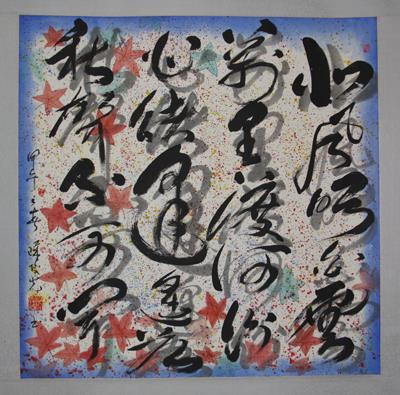 北風吹白雲
萬里渡河汾
心緒逢搖落
秋聲不可聞
甲午